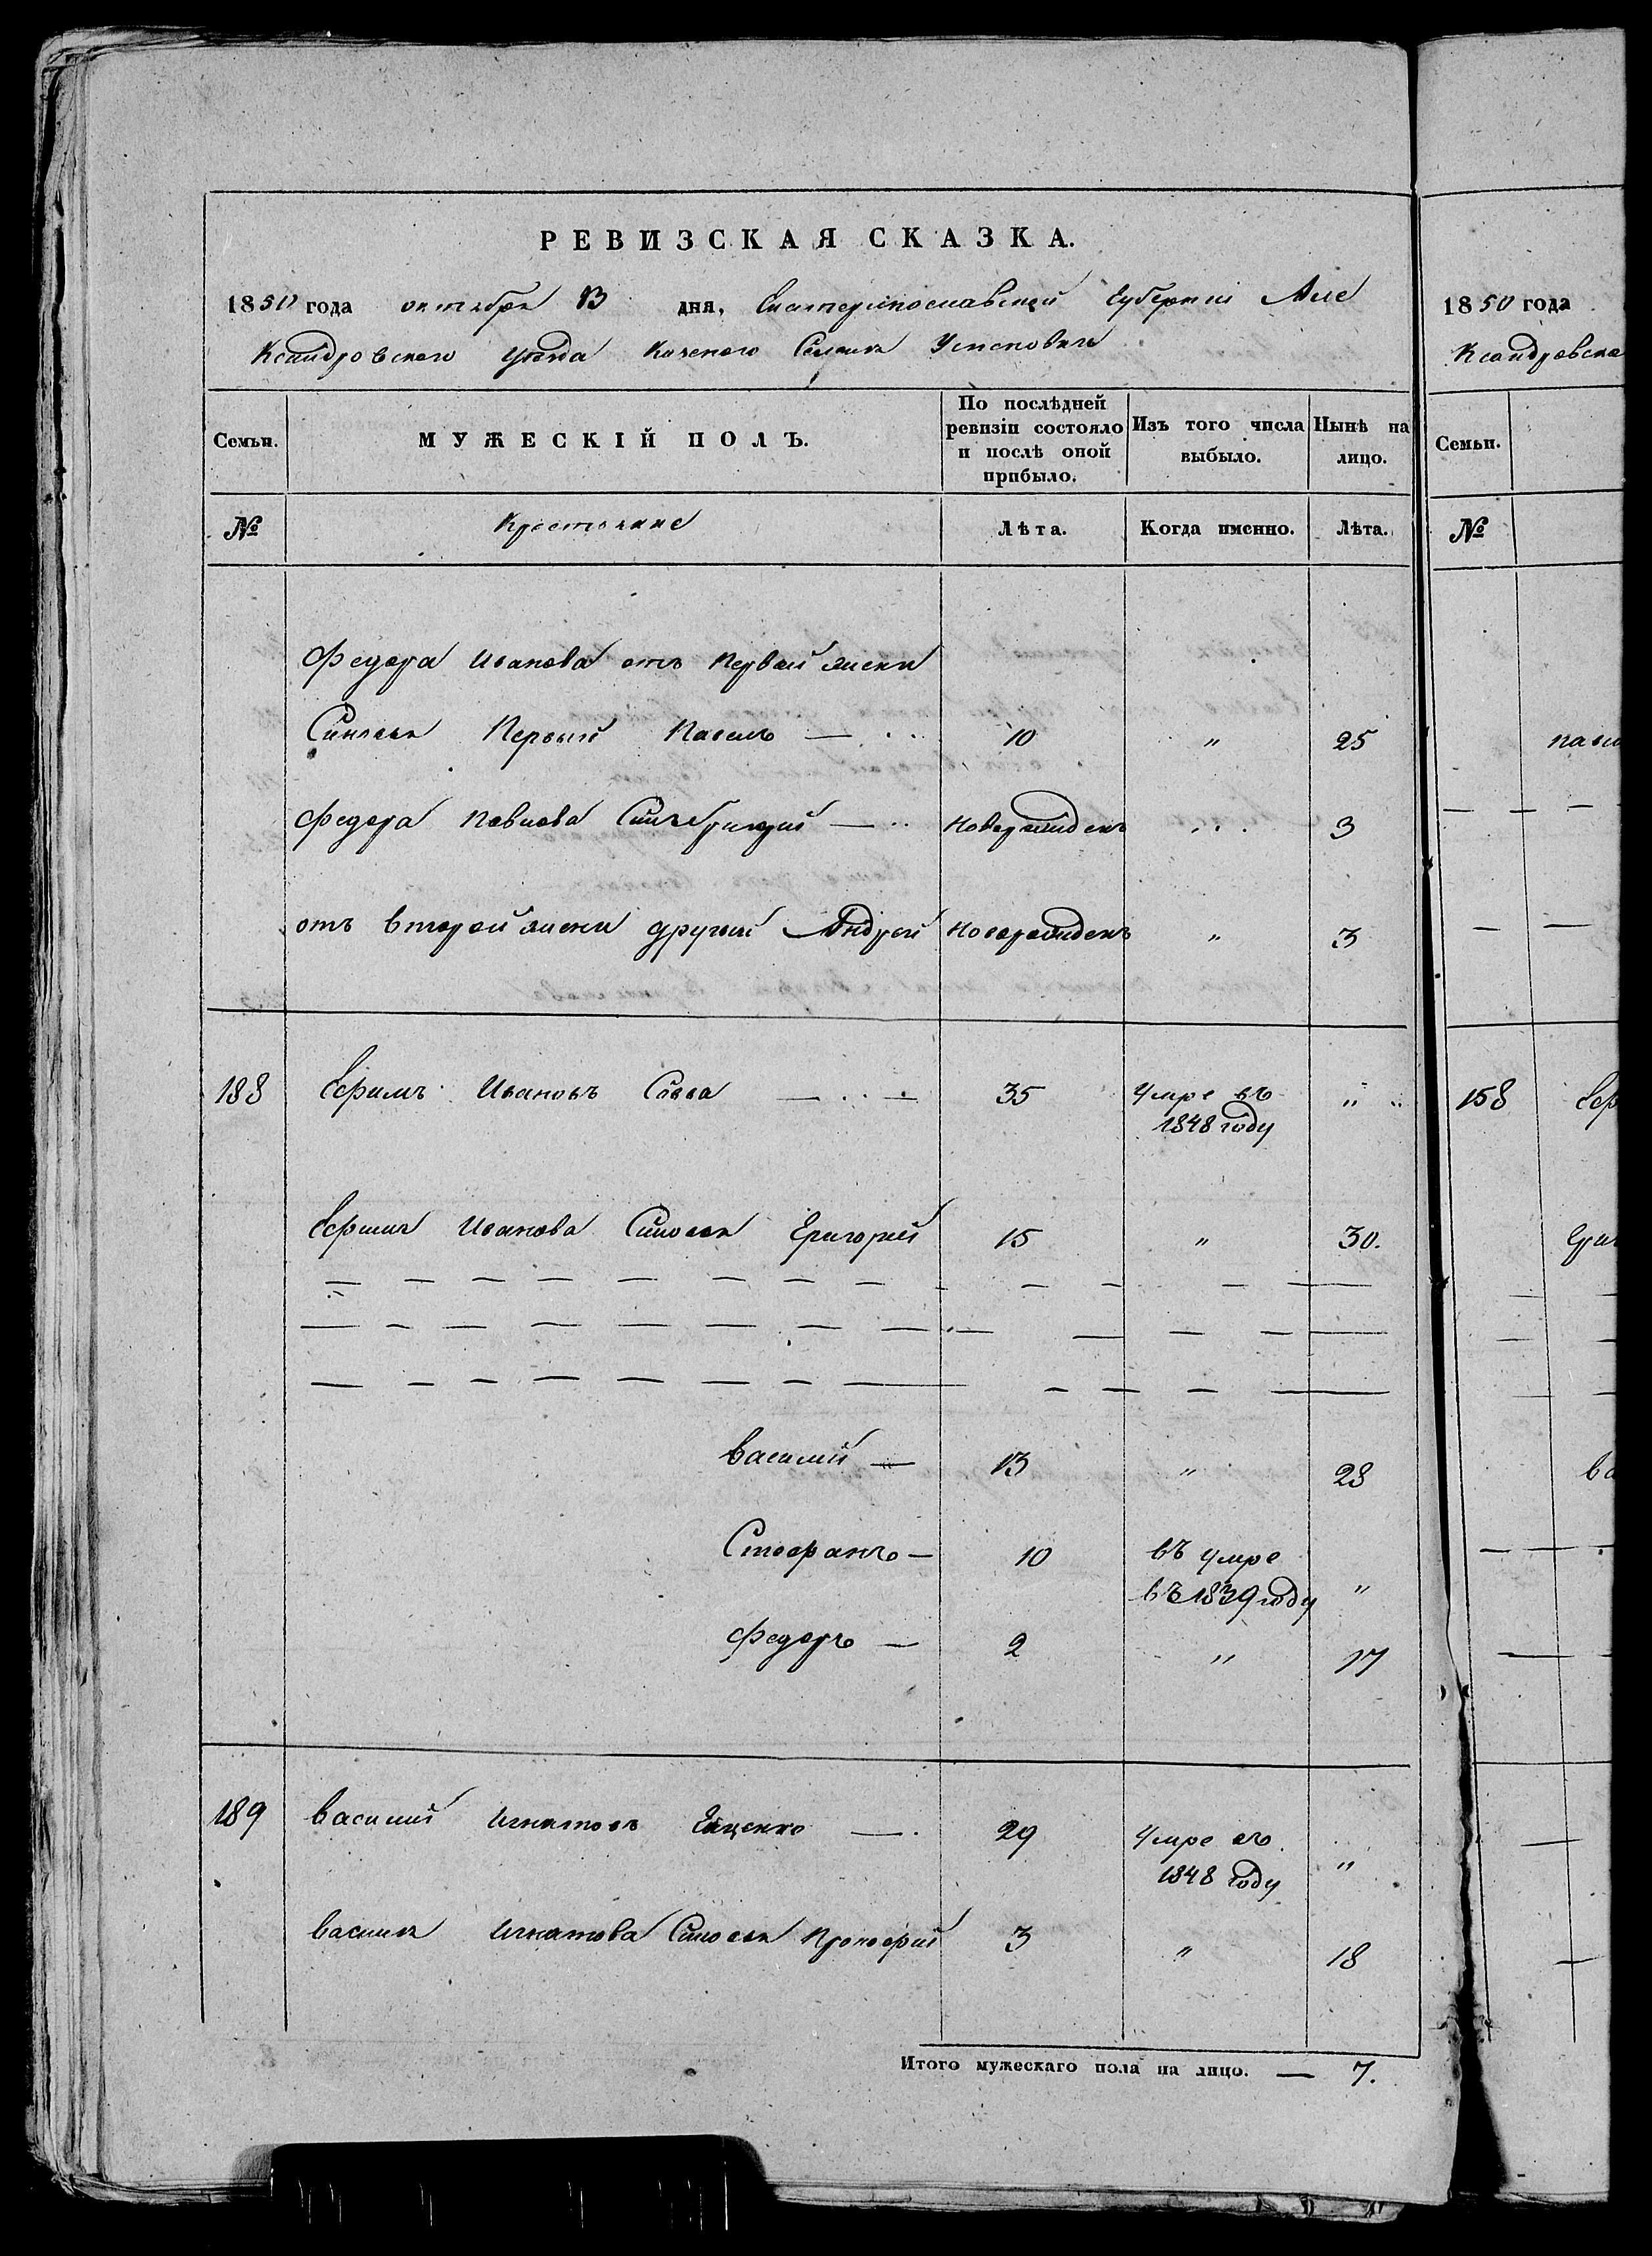 РЕВИЗСКАЯ СКАЗКА.
1850 года октября 13 дня, Екатеринославской Губернии Але
ксандровского уезда Казеного Селения
Семьи.
МУЖЕСКІЙ ПОЛЪ.
По послѣдней ревизіи состояло и послѣ оной прибыло.
Изъ того числа выбыло.
Нынѣ на лицо.
№
Крестьяне
Лѣта.
Когда именно.
Лѣта.
Федора Иванова отъ Первой жени
Синовья Первый Павелъ — 10 " 25
Федора Павлова Синъ — новорожденъ 3
отъ второй жени другий Андрей новорожденъ " 3
188 Ефимъ Ивановъ Совва — 35 умре въ 1848 году " "
Ефима Иванова Синовья Григорий 15 " 30.
Василий — 13 " 28
Стефанъ — 10 въ умре въ 1839 году "
Федоръ — 2 " 17
189 Василий Игнатовъ — 29 умре въ 1848 году "
Василя Игнатова Синовья Прокофий 3 " 18
Итого мужескаго пола на лицо. — 7.
1850 года
ксандровско
Семьи.
№
158